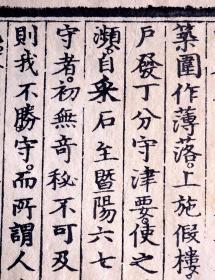 築圍作薄落。上施假樓。
戶發丁分守津要。使之
瀕。自采石至暨陽六七
守者。初無竒秘不可及
則我不勝守。而所謂人